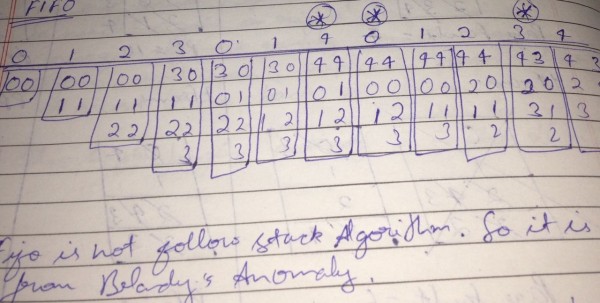 FIFO
* * *
0 1 2 3 0 1 4 0 1 2 3 4
00 00 00 30 30 30 44 44 44 44 43 4 3
11 11 11 01 01 01 00 00 20 20 2
22 22 22 12 12 12 11 11 31 3
3 3 3 3 3 3 2 2
is not follow stack Algorithm. So it is
from Belady's Anomaly.